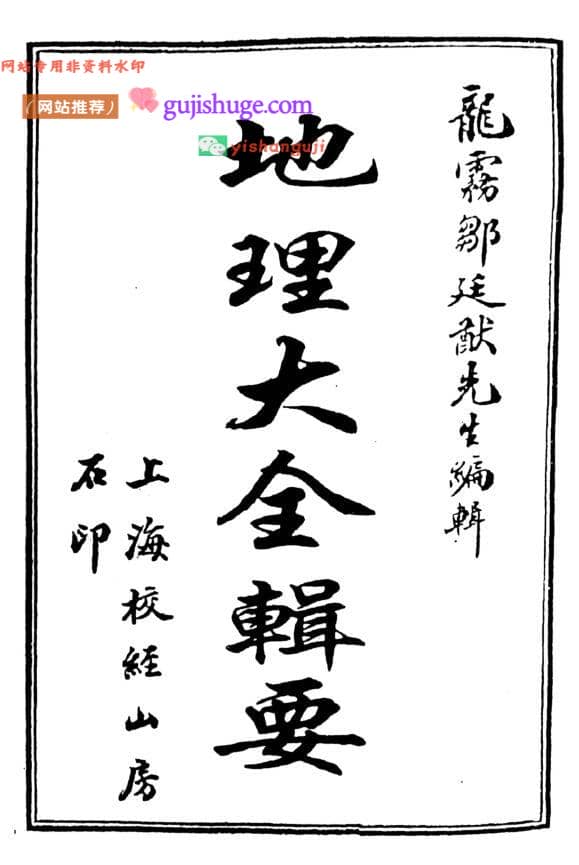 龍霧鄒廷猷先生編輯
地理大全輯要
上海校經山房
石印
网站专用非资料水印
(网站推荐)
gujishuge.com
yishanguji